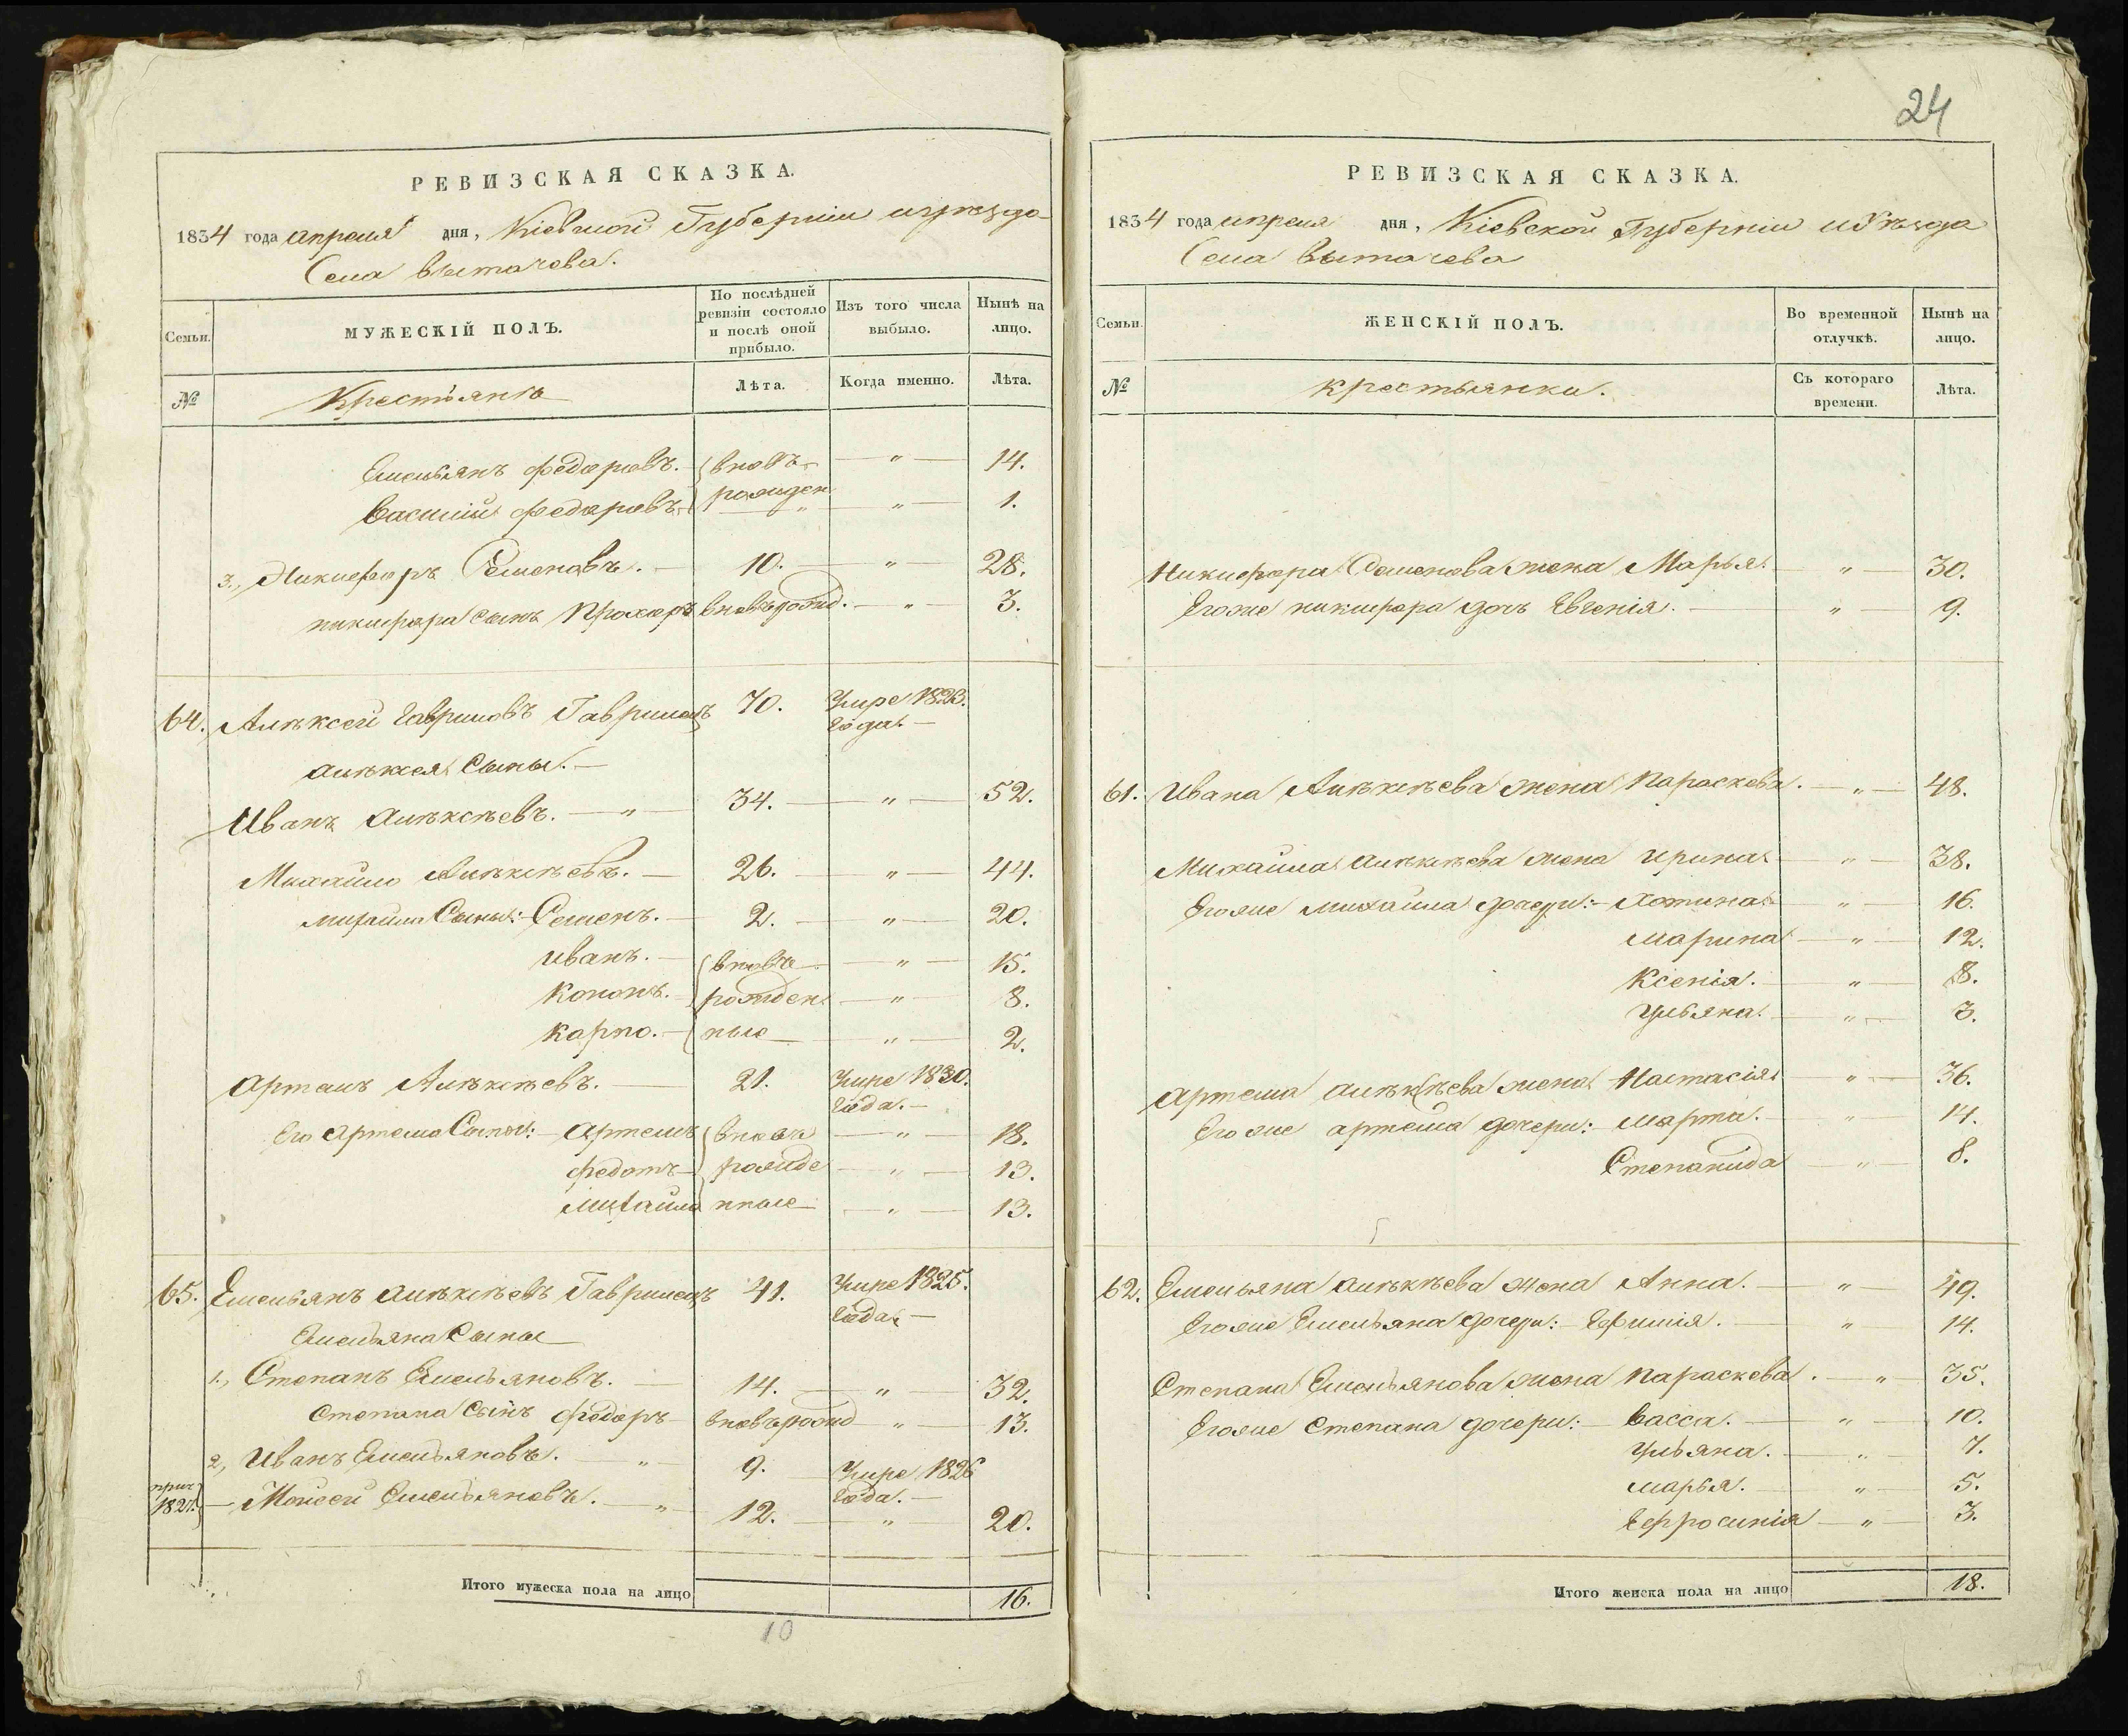 24
РЕВИЗСКАЯ СКАЗКА.
1834 года апреля дня, Кіевской Губерніи и уѣзда
Села Вытачева.
Семьи.
МУЖЕСКІЙ ПОЛЪ.
По послѣдней ревизіи состояло и послѣ оной прибыло.
Изъ того числа выбыло.
Нынѣ на лицо.
№
Крестьянѣ
Лѣта.
Когда именно.
Лѣта.
Емельянъ Федоровъ. вновь — " — 14.
Василій Федоровъ рожден " — " — 1.
3., Никифоръ Семеновъ. — 10. — " — 28.
Никифора сынъ Прохоръ вновь рожд. — " — 3.
64. Алѣксей Гавриловъ Гавриленъ 70. Умре 1823.
года. —
Алѣксея Сыны. —
Иванъ Алѣксѣевъ. — " — 34. — " — 52.
Михайло Алѣксѣевъ. — 26. — " — 44.
Михайла Сыны: Семенъ. — 2. — " — 20.
Иванъ. — вновь — " — 15.
Кононъ. — рожден — " — 8.
Карпо. — ные — " — 2.
Артемъ Алѣксѣевъ. — 21. Умре 1830.
года. —
Его Артема Сыны: Артемъ вновь — " — 18.
Федотъ — рожде — " — 13.
Михайло нные — " — 13.
65. Емельянъ Алѣксѣевъ Гавриленъ 41. Умре 1825.
года. —
Емельяна Сыны
1., Степанъ Емельяновъ. — 14. — " — 32.
Степана Сынъ Федоръ — вновь рожд — " — 13.
2, Иванъ Емельяновъ. — " — 9. — Умре 1826
года. —
прич 1827. — Мойсей Емельяновъ. — " — 12. — " — 20.
Итого мужеска пола на лицо 16.
10
РЕВИЗСКАЯ СКАЗКА.
1834 года апреля дня, Кіевской Губерніи и Уѣзда
Села Вытачева
Семьи.
ЖЕНСКІЙ ПОЛЪ.
Во временной отлучкѣ.
Нынѣ на лицо.
№
Крестьянки.
Съ котораго времени.
Лѣта.
Никифора Семенова жена Марья. — " — 30.
Егоже Никифора дочь Евгенія. — " — 9.
61. Ивана Алѣксѣева жена Параскева. — " — 48.
Михайла Алѣксѣева жена Ирина. — " — 38.
Егоже Михайла дочери: — " — 16.
Марина — " — 12.
Ксенія. — " — 8.
Ульяна. — " — 3.
Артема Алѣксѣева жена Настасія — " — 36.
Егоже Артема дочери: Марта. — " — 14.
Степанида — " — 8.
62. Емельяна Алѣксѣева жена Анна. — " — 49.
Егоже Емельяна дочери: Ефимія. — " — 14.
Степана Емельянова жена Параскева. — " — 35.
Егоже Степана дочери: Васса. — " — 10.
Ульяна. — " — 7.
Марья. — " — 5.
Ефросинія — " — 3.
Итого женска пола на лицо 18.